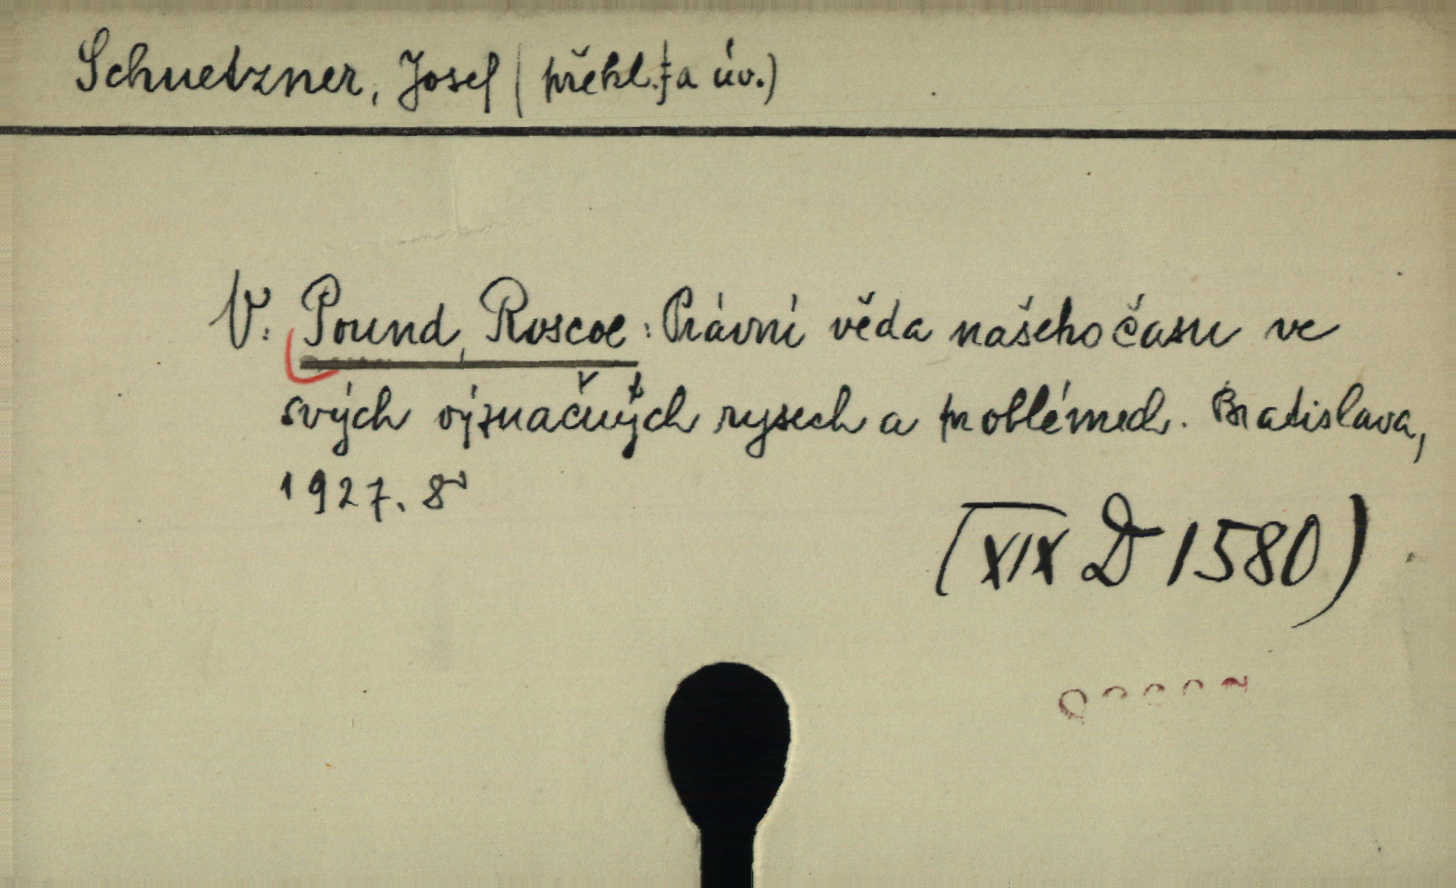 Schuetzner, Josef (překl. a úv.)
V. Pound, Roscoe: Právní věda našeho času ve
svých význačných rysech a problémech. Bratislava,
1927. 8°
(XIX D 1580)